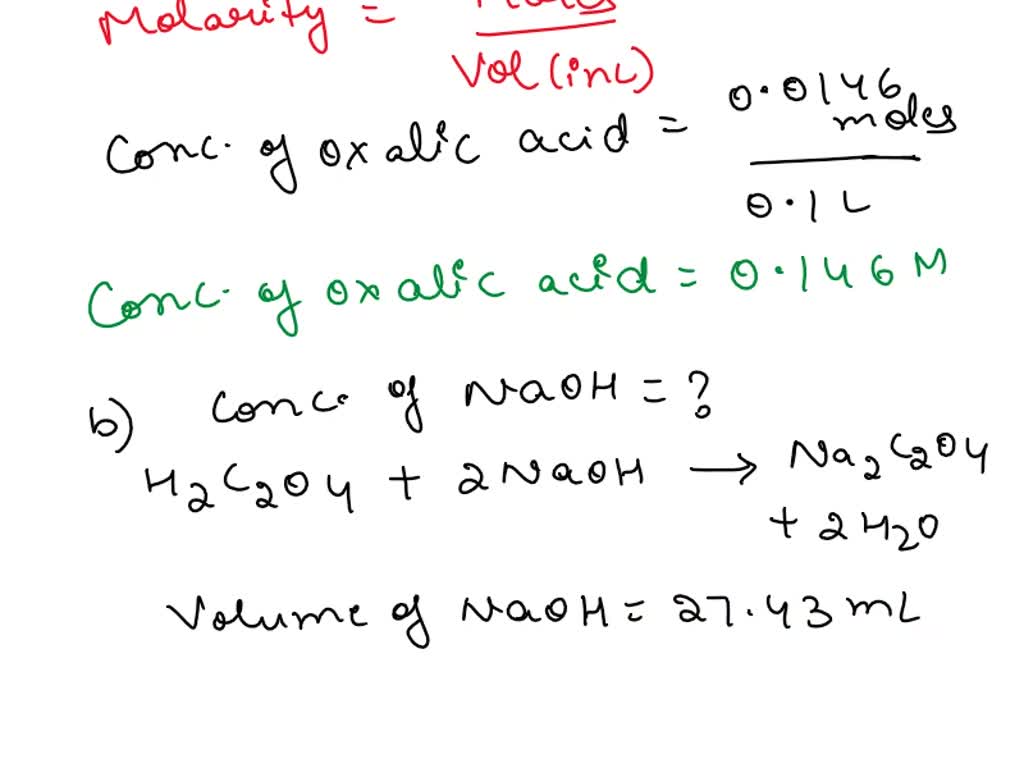 Molarity =
Vol (in L)
Conc. of oxalic acid = 0.0146 moles
0.1 L
Conc. of oxalic acid = 0.146 M
b) Conc. of NaOH = ?
H2C2O4 + 2NaOH → Na2C2O4
+ 2H2O
Volume of NaOH = 27.43 mL